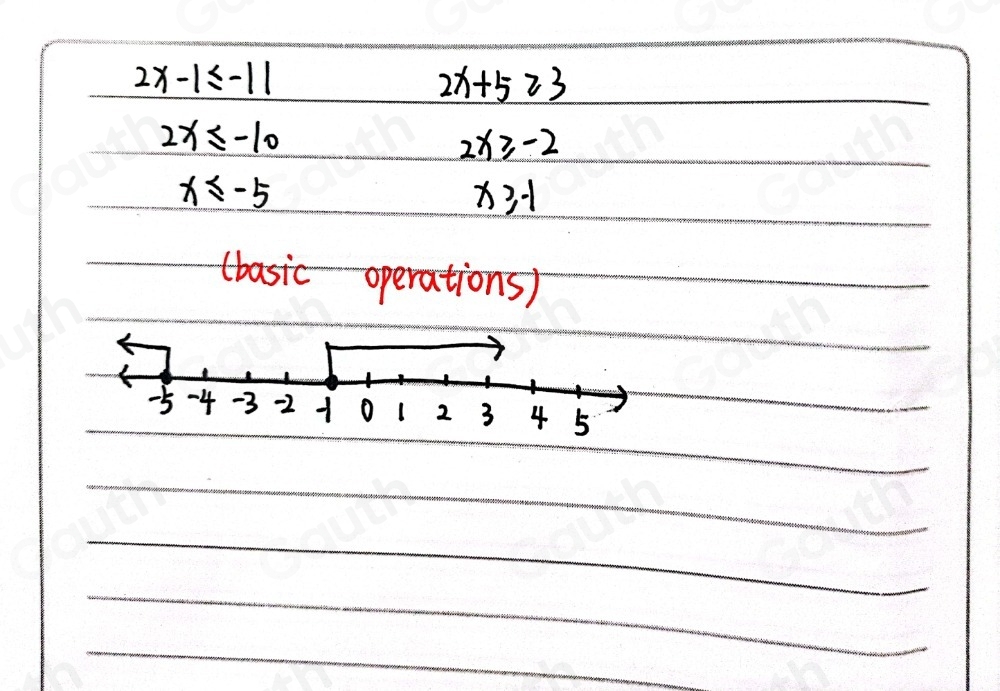 2x-1≤-11 2x+5≥3
2x≤-10 2x≥-2
x≤-5 x≥-1
(basic operations)
-5 -4 -3 -2 -1 0 1 2 3 4 5